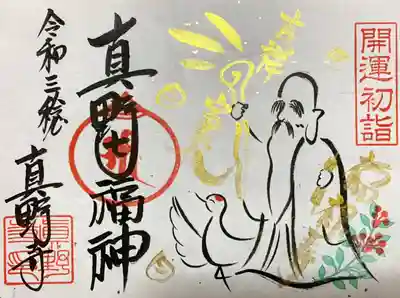 開運初詣
真野七福神
令和三年
真野寺